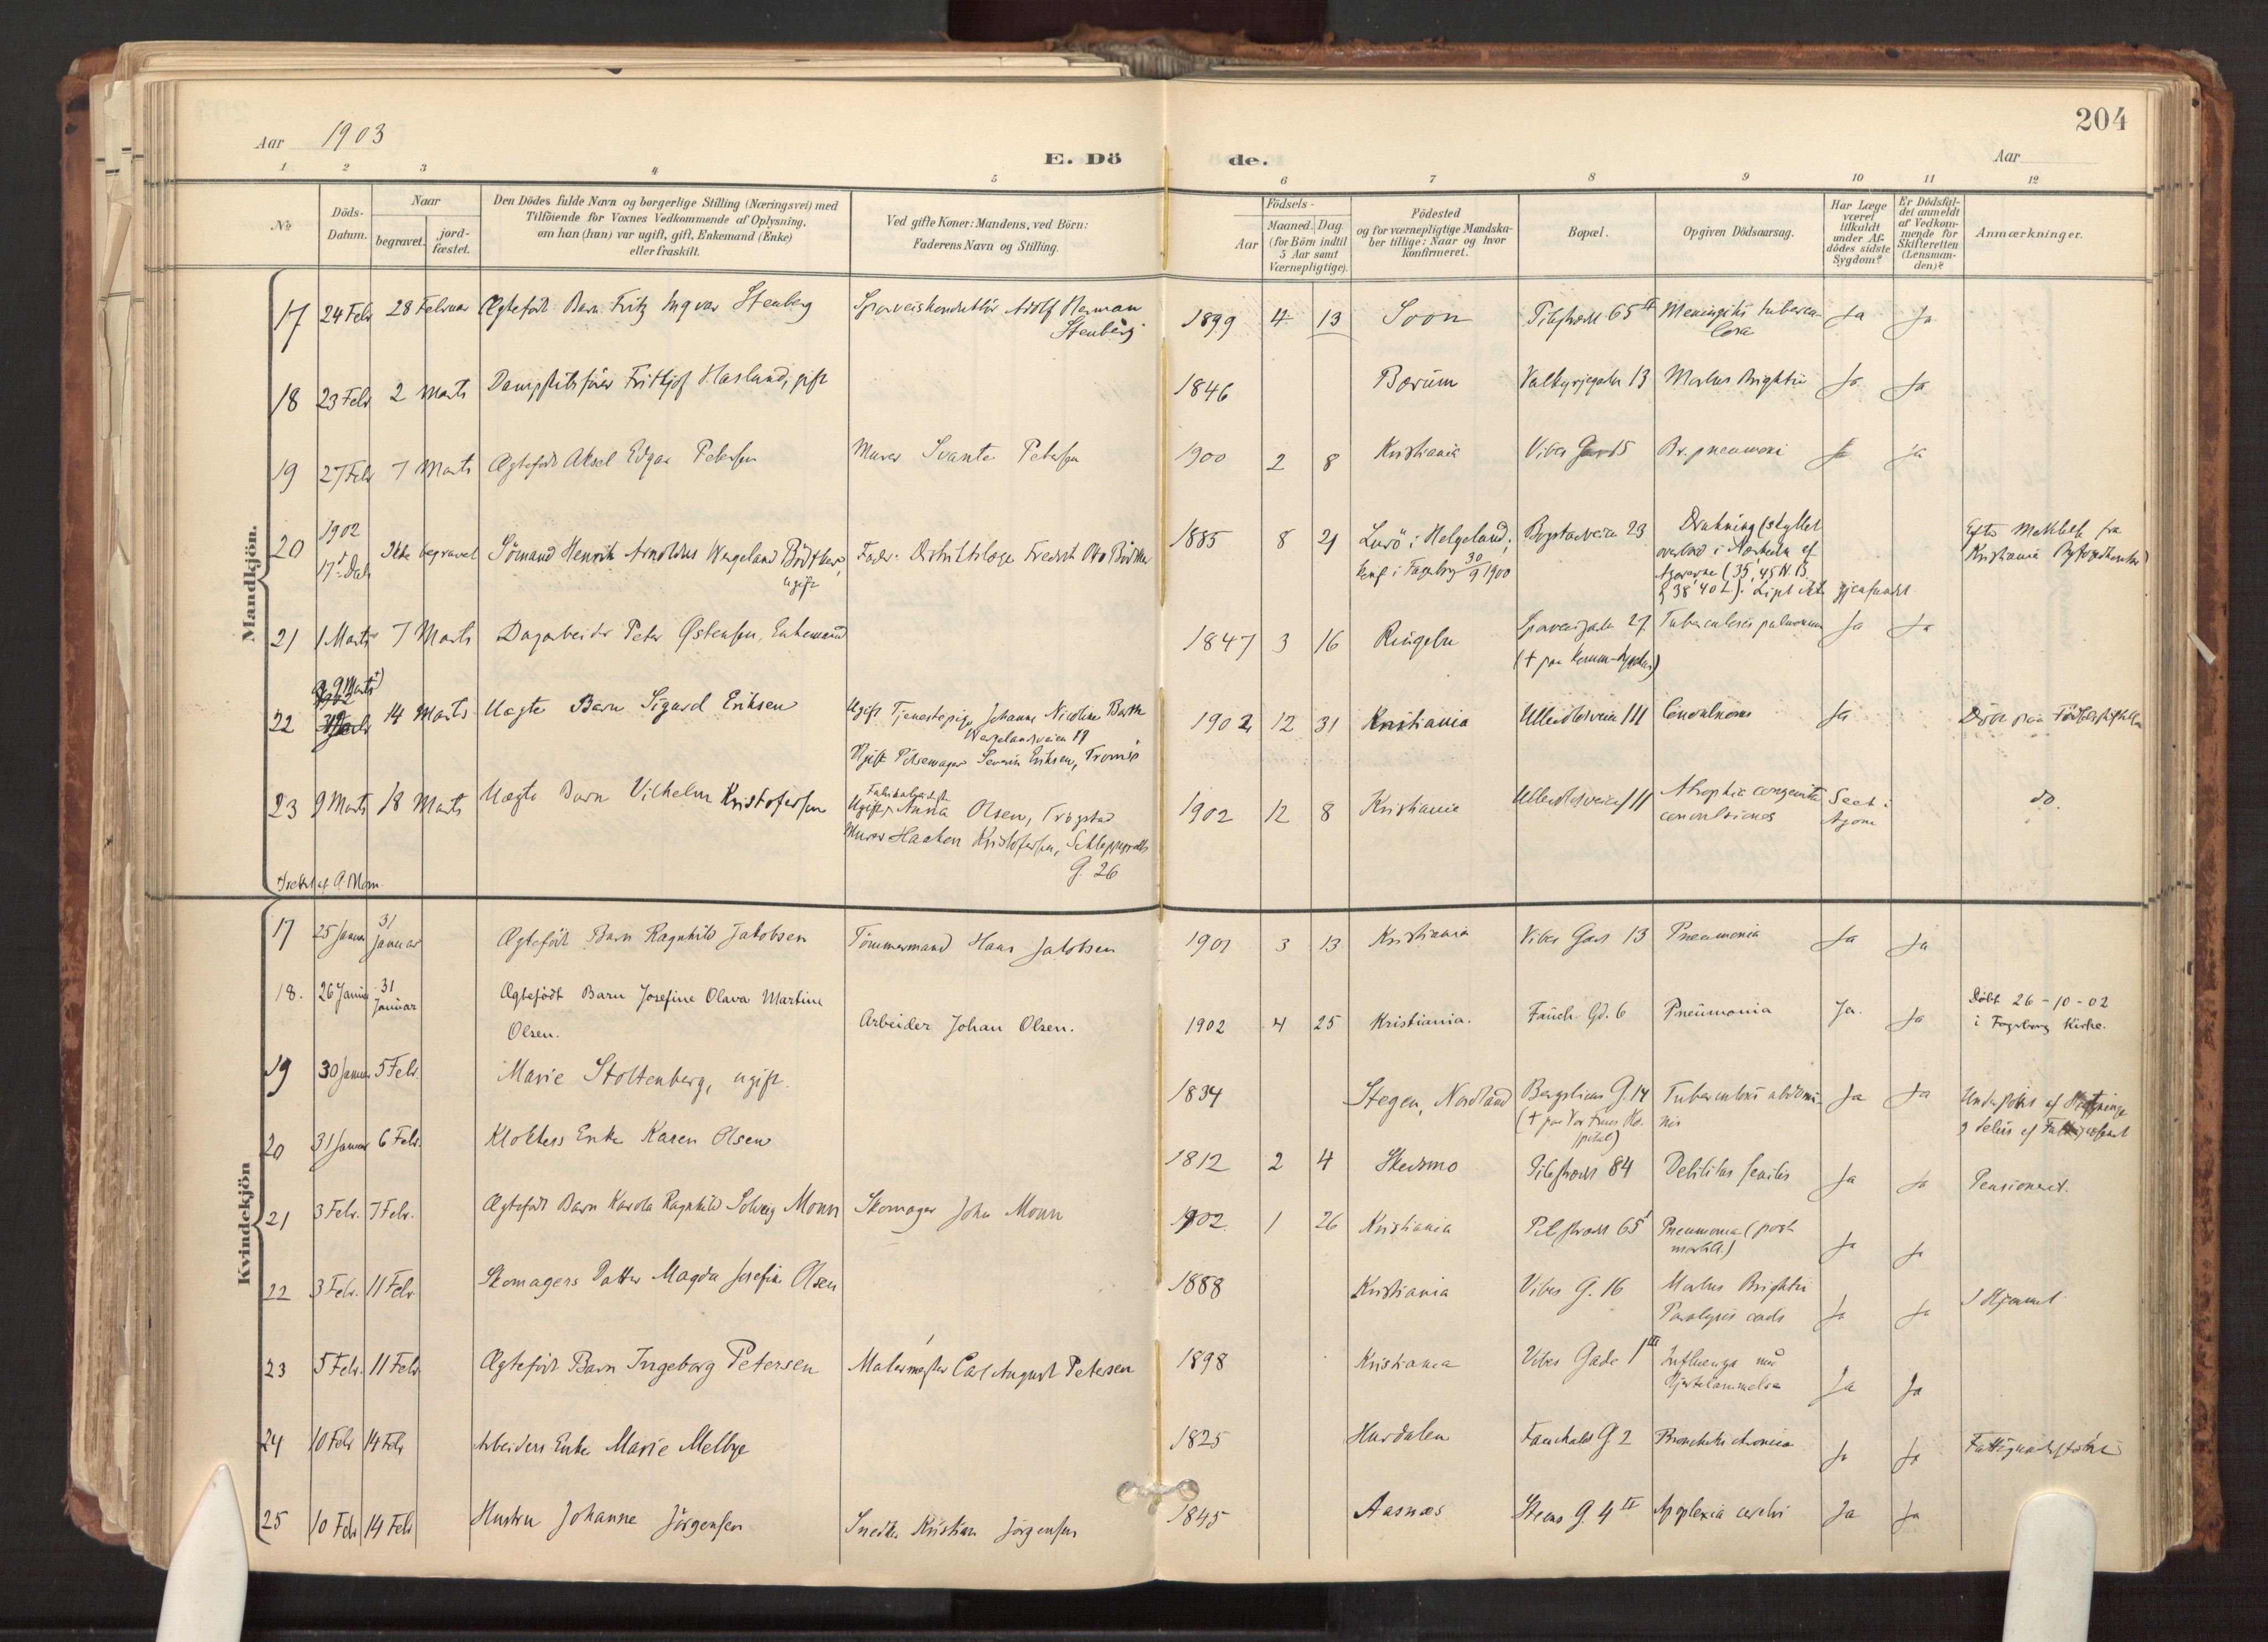 204
Aar 1903
E. Dö de.
Aar
1 2 3 4 5 6 7 8 9 10 11 12
No
Döds-Datum.
Naar
begravet.
jord-fæstet.
Den Dödes fulde Navn og borgerlige Stilling (Næringsvei) med
Tilföiende for Voxnes Vedkommende af Oplysning,
om han (hun) var ugift, gift, Enkemand (Enke)
eller fraskilt.
Ved gifte Koner: Mandens, ved Börn:
Faderens Navn og Stilling.
Födsels-
Aar
Maaned. Dag.
(for Börn indtil
5 Aar samt
Værnepligtige).
Födested
og for værnepligtige Mandska-
ber tillige: Naar og hvor
konfirmeret.
Bopæl.
Opgiven Dödsaarsag.
Har Læge
været
tilkaldt
under Af-
dödes sidste
Sygdom?
Er Dödsfal-
det anmeldt
af Vedkom-
mende for
Skifteretten
(Lensman-
den)?
Anmærkninger.
Mandkjön.
17 24 Febr 28 Februar Ægtefödt Barn Fritz Ingvar Stenberg Sporveiskonduktör Adolf Herman
Stenberg
1899 4 13 Soon Pilestrædet 65 II Meningitis tubercu-
losa Ja Ja
18 23 Febr 2 Marts Dampskibsförer Frithjof Hasland, gift 1846 Bærum Valkyrjegaden 13 Morbus Brightii Ja Ja
19 27 Febr 7 Marts Ægtefödt Aksel Edgar Petersen Murer Svante Petersen 1900 2 8 Kristiania Vibes Gade 15 Br. pneumoni Ja Ja
20 1902
17 Ikke begravet Sömand Henrik Arnoldus Wergeland Bödtker,
ugift
Fader: Distriktslæge Fredrik Otto Bödtker
1885 8 21 Lurö i Helgeland;
konf i Fagerborg 30/9 1900
Bogstadveien 23
Drukning (skyllet
overbord i Nærheden af
Azorerne (35, 45 N. B.
& 38, 40 L). Liget ikke gjenfundet
Efter Meddelelse fra
Kristiania Byfogedkontor
21 1 Marts 7 Marts Dagarbeider Peter Østensen, Enkemand 1847 3 16 Ringebu Sporveisgaden 27 Tuberculosis pulmonum Ja Ja
22 9 Marts 14 Marts Uægte Barn Sigurd Eriksen Ugift Tjenestepige Johanne Nicoline Barth
Wergelandsveien 19
Ugift Pölsemager Severin Eriksen, Tromsö
1902 12 31 Kristiania Ullevoldsveien 111 Convulsiones Ja
23 9 Marts 18 Marts Uægte Barn Vilhelm Kristofersen
Ugift Anna Olsen, Trögstad
Murer Haakon Kristofersen, Schleppegrells
G. 26
1902 12 8 Kristiania Ullevoldsveien 111 Atrophia congenita
convulsiones Seet i
Agone do.
Kvindekjön
17 25 Januar 31 Januar Ægtefödt Barn Ragnhild Jakobsen Tömmermand Hans Jakobsen 1901 3 13 Kristiania Vibes Gade 13 Pneumonia Ja Ja
18. 26 Januar 31 Januar Ægtefödt Barn Josefine Olava Martine
Olsen. Arbeider Johan Olsen. 1902 4 25 Kristiania. Fauch. Gd. 6 Pneumonia Ja. Ja
Döbt 26-10-02
i Fagerborg Kirke.
19 30 Januar 5 Febr. Marie Stoltenberg, ugift. 1834 Stegen, Nordland Bergsliens G. 14
(† paa Vor Frues Ho-
spital)
Tuberculosis abdomi-
nis Ja Ja
20 31 Januar 6 Febr. Klokkers Enke Karen Olsen 1812 2 4 Skedsmo Pilestrædet 84 Debilitas senilis Ja Ja Pensioneret.
21 3 Febr. 7 Febr. Ægtefödt Barn Karola Ragnhild Solveig Monn Skomager John Monn 1902 1 26 Kristiania Pilestrædet 65 Pneumonia (post
morbill.) Ja Ja
22 3 Febr. 11 Febr Skomagers Datter Magda Josefine Olsen 1888 Kristiania Vibes G. 16 Morbus Brightii
Paralysis cordis Ja Ja I Hjemmet
23 5 Febr. 11 Febr. Ægtefödt Barn Ingeborg Petersen Malermester Carl August Petersen 1898 Kristiania Vibes Gade 1 III Influenza m
Hjertelammelse Ja Ja
24 10 Febr 14 Febr Arbeiders Enke Marie Melbye 1825 Hurdalen Fauchalds G 2 Bronchitis chronica Ja Ja
25 10 Febr 14 Febr Hustru Johanne Jörgensen Snedker Kristian Jörgensen 1845 Aasnæs Steens G 4 II Apoplexia cerebri Ja Ja